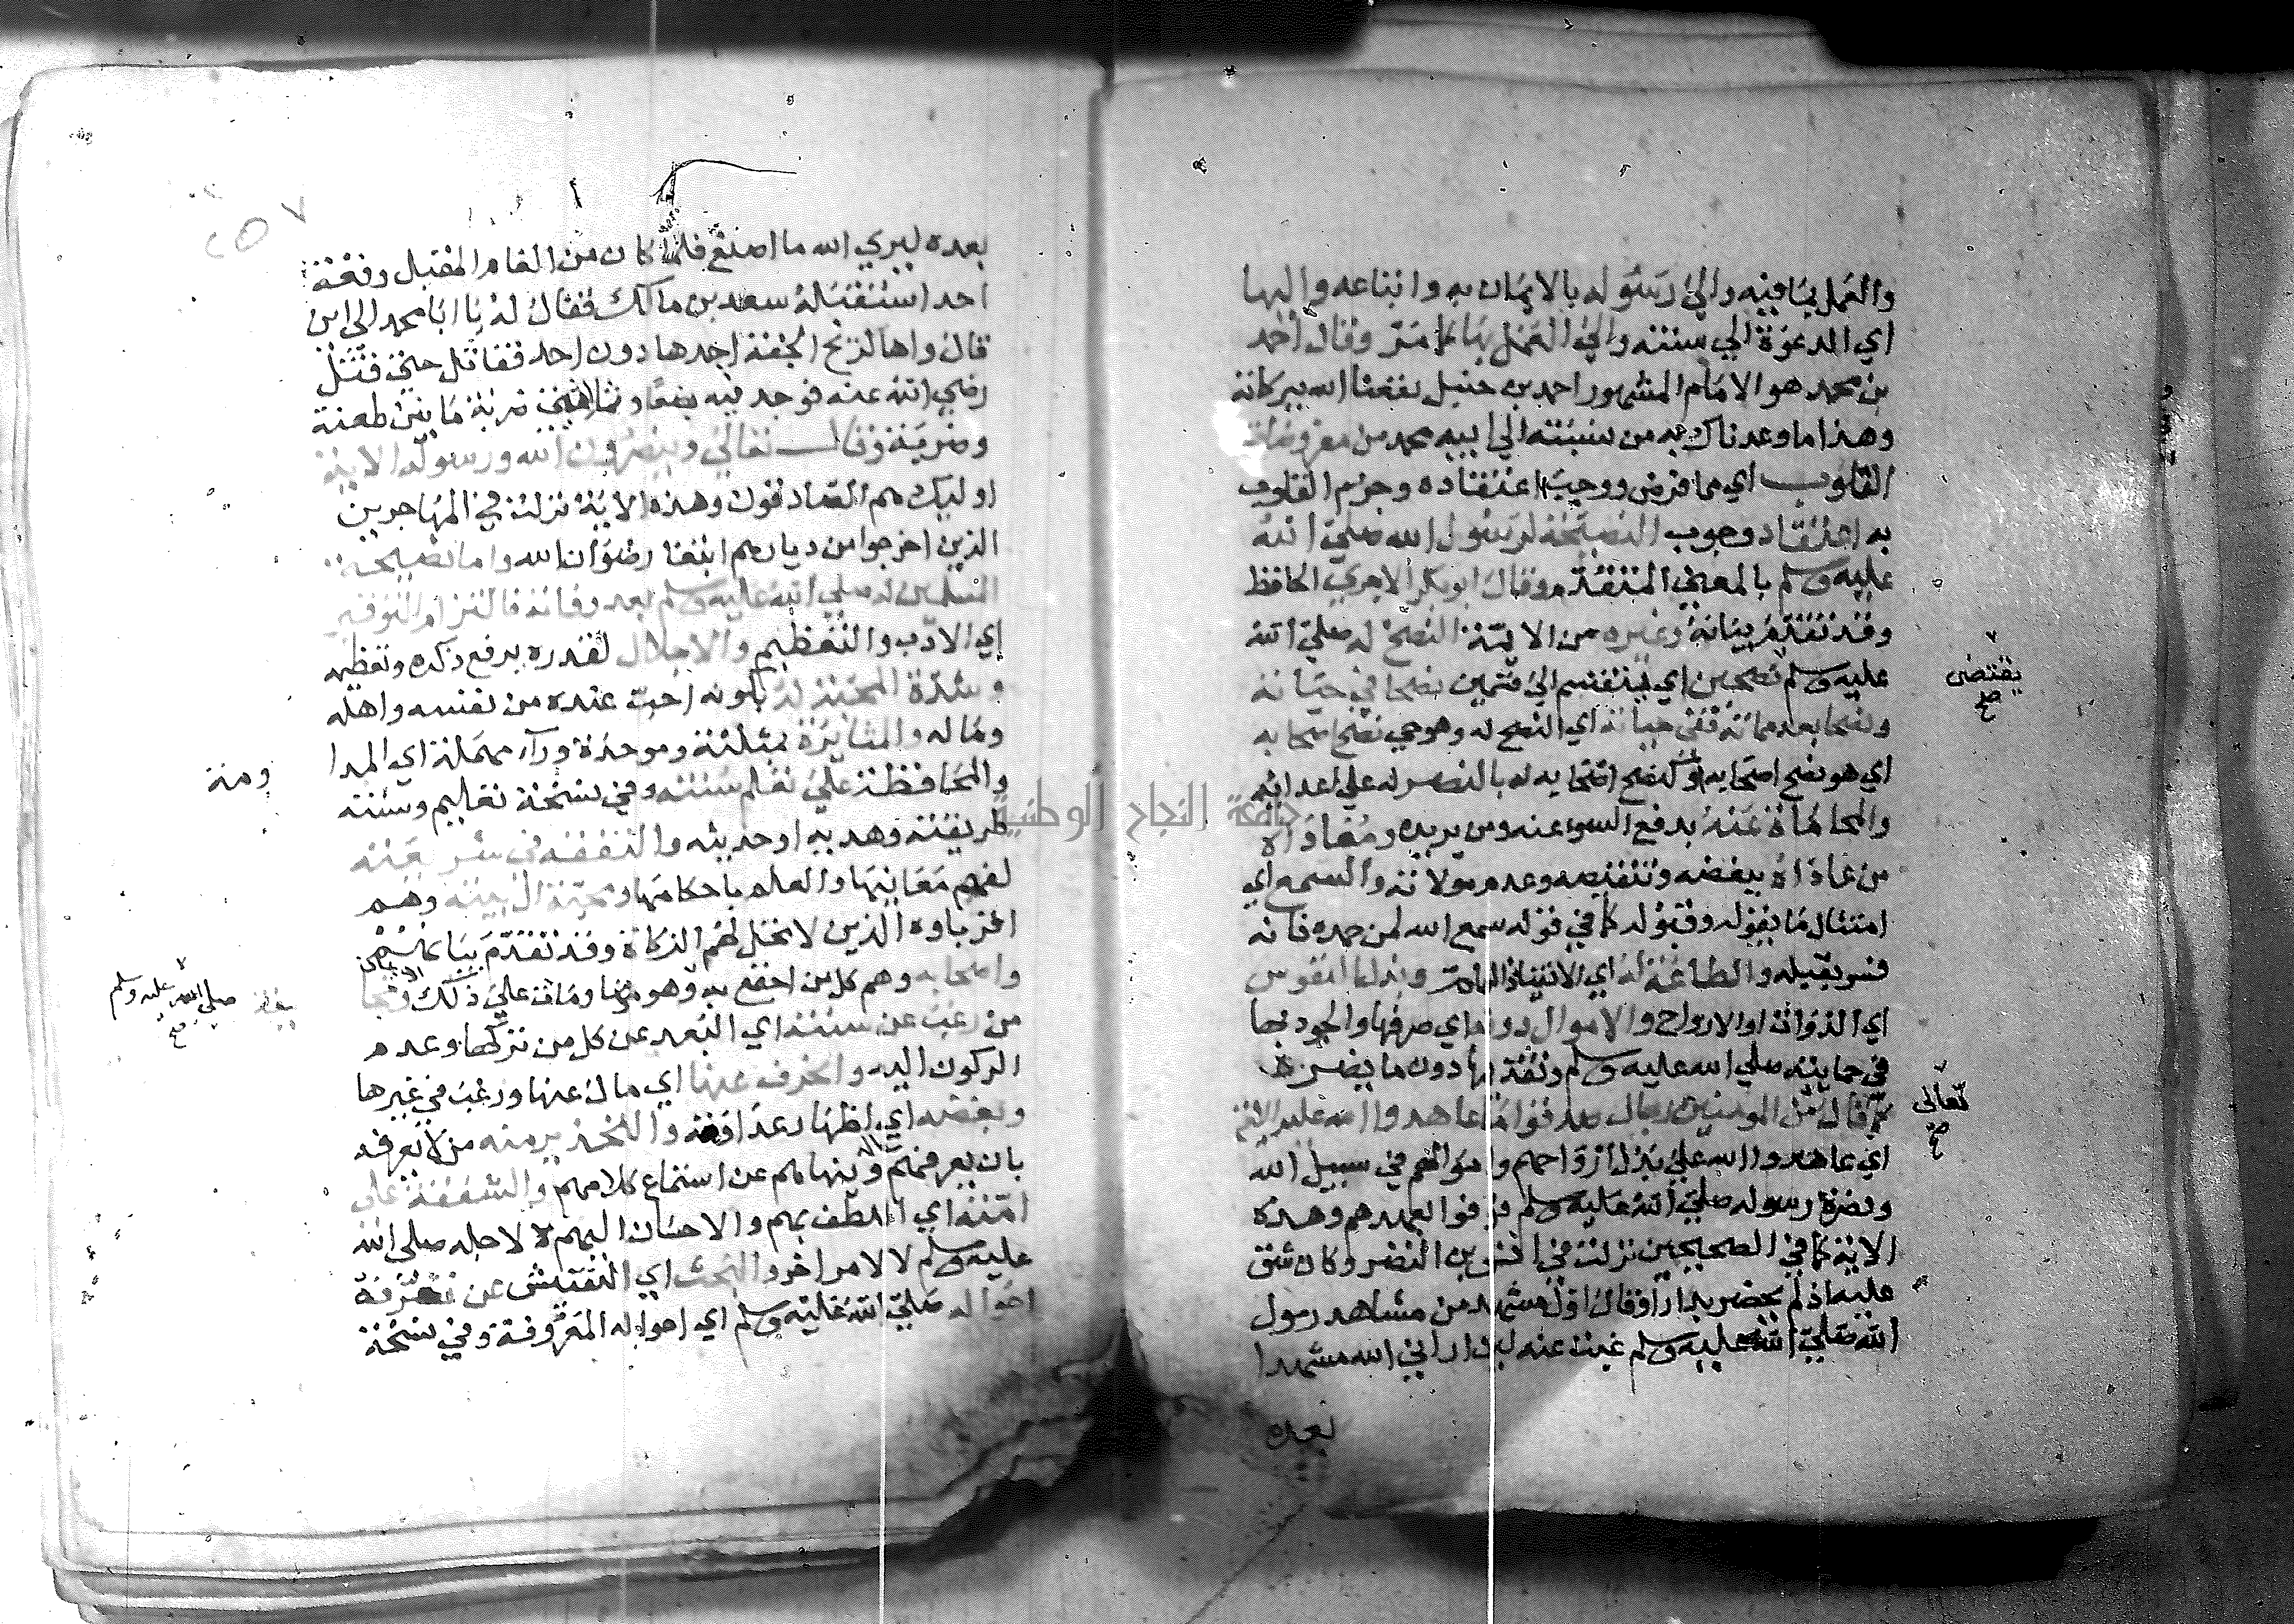 والعمل بما فيه والى رسوله بالايمان به واتباعه واليها
اي الدعوة الي سنته والي العمل بها كما مر وقال احمد
بن محمد هو الامام المشهور احمد بن حنبل نفعنا الله ببركاته
وهذا ما وعدناك به من نسبته الي ابيه محمد من مفروضات
القلوب اي مما فرض ووجب اعتقاده وجزم القلوب
به اعتقاد وجوب النصيحة لرسول الله صلي الله
عليه وسلم بالمعني المتقدم وقال ابو بكر الاجري الحافظ
وقد تقدم بيانه وغيره من الايمة النصح له صلي الله
عليه وسلم نصحين اي ينقسم الي قسمين نصحا في حياته
يقتضى
صح
ونصحا بعد مماته ففي حياته اي النصح له وهو حي نصح اصحابه
اي هو نصح اصحابه او كنصح اصحابه له بالنصر له علي اعدائه
والمحاماة عنه بدفع السوء عنه ومن يريده ومعاداة
من عاداه ببغضه وتنقيصه وعدم موالاته والسمع اي
امتثال ما يقوله وقبوله كما في قوله سمع الله لمن حمده فانه
فسر بقبله والطاعة له اي الانقياد التام وبذل النفوس
اي الذوات او الارواح والاموال دونه اي صرفها والجود بها
في حمايته صلي الله عليه وسلم دون ما يضره
كما قال من المومنين رجال صدقوا ما عاهدوا الله عليه الاية
تعالى
صح
اي عاهدوا الله علي بذل ارواحهم واموالهم في سبيل الله
ونصرة رسوله صلي الله عليه وسلم فوفوا بعهدهم وهذه
الاية كما في الصحيحين نزلت في انس بن النضر وكان شق
عليه اذ لم يحضر بدرا وقال اول مشهد من مشاهد رسول
الله صلي الله عليه وسلم غبت عنه لين اراني الله مشهدا
بعده
٢٥٧
بعده ليري الله ما اصنع فلما كان من العام المقبل وقعة
احد استقبله سعد بن مالك فقال له يا ابا محمد الي اين
قال واها لريح الجنة اجدها دون احد فقاتل حتي قتل
رضي الله عنه فوجد فيه بضعا وثمانين ضربة ما بين طعنة
وضربة وقال تعالي وينصرون الله ورسوله الاية
اوليك هم الصادقون وهذه الاية نزلت في المهاجرين
الذين اخرجوا من ديارهم ابتغا رضوان الله واما نصيحة
المسلمين له صلي الله عليه وسلم بعد وفاته فالتزام التوقير
اي الادب والتعظيم والاجلال لقدره برفع ذكره وتعظيمه
وشدة المحبة له بكونه احب عنده من نفسه واهله
وماله والمثابرة بمثلثة وموحدة وراء مهملة اي المداومة
والمحافظة علي تعلم سنته وفي نسخة تعليم وسنته
طريقته وهديه او حديثه والتفقه في شريعته
لفهم معانيها والعلم باحكامها ومحبة ال بيته وهم
اقرباوه الذين لا تحل لهم الزكاة وقد تقدم بيانهم
واصحابه وهم كل من اجتمع به وهو مومن ومات علي ذلك
صلى الله عليه وسلم
صح
من رغب عن سنته اي البعد عن كل من تركها وعدم
الركون اليه وانحرف عنها اي مال عنها ورغب في غيرها
وبغضه اي اظهار عداوته والتحذير منه من لا يعرفه
بان يعرفهم وينهاهم عن استماع كلامهم والشفقة علي
امته اي اللطف بهم والاحسان اليهم لاجله صلي الله
عليه وسلم لا لامر اخر والبحث اي التفتيش عن تعرف
احواله صلي الله عليه وسلم اي احواله المعروفة وفي نسخة
جامعة النجاح الوطنية